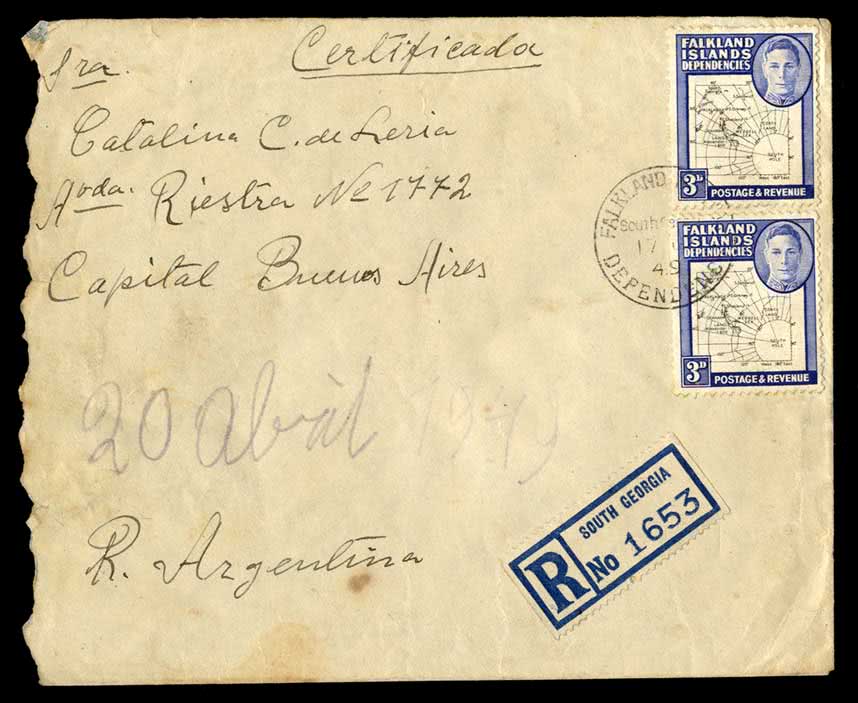 Certificada
Sra.
Catalina C. de Leria
Avda. Riestra No 1772
Capital Buenos Aires
20 abril 1949
R. Argentina
FALKLAND
ISLANDS
DEPENDENCIES
SOUTH POLE
3D
POSTAGE & REVENUE
FALKLAND
South
17
49
DEPENDENC
FALKLAND
ISLANDS
DEPENDENCIES
SOUTH POLE
3D
POSTAGE & REVENUE
R
SOUTH GEORGIA
No 1653